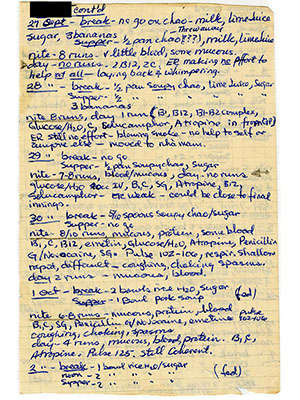 cont'd
27 Sept - break - no go on chao - milk, lime Juice
sugar, 3 bananas
Throw away
Supper - ½ pan chao???), milk, lime Juice
nite - 8 runs - v little blood, some mucous.
day - no runs. 2 B12, 2C, ER making no effort to
help at all - laying back & whimpering.
28 " - break - ½ pan soupy chao, Lime Juice, Sugar
Supper - ½
3 bananas
nite 8 runs, day 1 run (B1, B12, B1-B2 Complex,
Glucose/H2O, C, Solucamphor, Atropine in
ER still no effort - blowing smoke - no help to self or
anyone else - moved to nhà nam.
29 " - break - no go
Supper - ½ pan Soupy chao, Sugar
nite - 7-8 runs, blood/mucous, day - no runs
glucose/H2O 200cc IV, B1, C, SG, Atropine, B12,
Solucamphor - ER weak - could be close to final
innings.
30 " - break - 8/10 spoons soupy chao/sugar
Supper - no go
nite - 8/10 runs, mucous, protein, some blood
B1, C, B12, emetin, glucose/H2O, Atropine, Penicillin
G/Novocaine, SG. Pulse 102-106, respir. shallow
rapid, difficult - coughing, choking spasms.
day 2 runs - mucous, blood.
1 Oct - break - 2 bowls rice H2O, Sugar
Supper - 1 Bowl pork soup (fed)
nite 6-8 runs - mucous, protein, blood pulse 102-106
B1, C, SG, Penicillin G/Novocaine, emetine
coughing, choking, spasms
day - 4 runs, mucous, blood, protein. B1, C,
Atropine. Pulse 125. Still Coherent.
2 " - break - 1 bowl rice H2O/sugar
noon - 2 " " " " (fed)
Supper - 2 " " " "